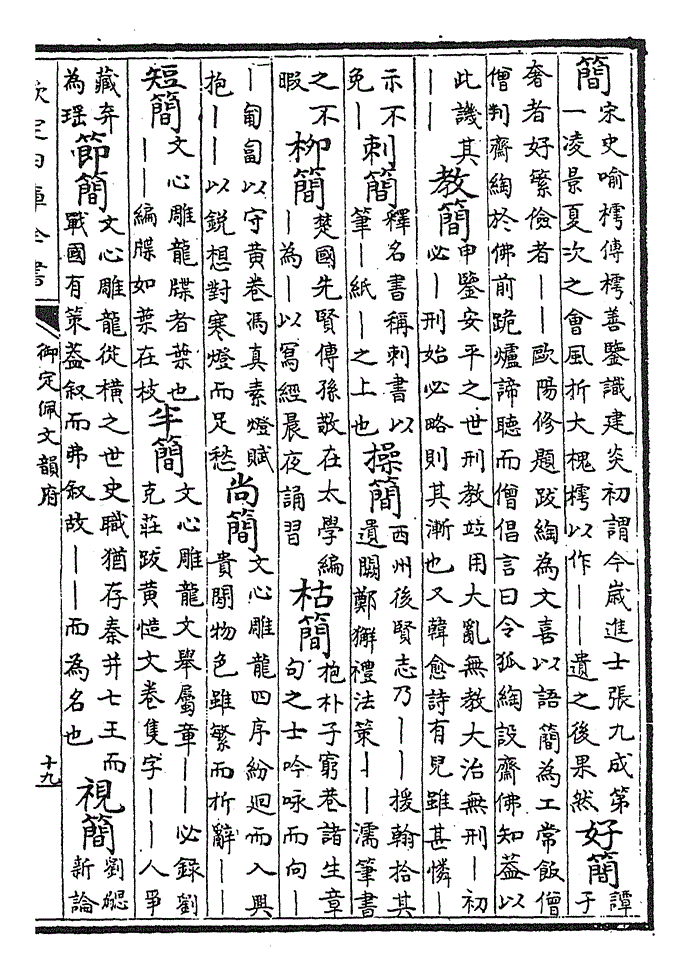 簡
宋史喻樗傳樗善鑒識建炎初謂今歲進士張九成第
一凌景夏次之會風折大槐樗以作——遺之後果然
好簡
譚
子
奢者好繁儉者——歐陽修題跋綯為文喜以語簡為工常飯僧
僧判齋綯於佛前跪爐諦聽而僧倡言曰令狐綯設齋佛知葢以
此譏其
——
教簡
申鑒安平之世刑教竝用大亂無教大治無刑—初
必—刑始必略則其漸也又韓愈詩有兒雖甚憐—
示不
免—
刺簡
釋名書稱刺書以
筆—紙—之上也
操簡
西州後賢志乃——援翰拾其
遺闕鄭獬禮法策——濡筆書
之不
暇
柳簡
楚國先賢傳孫敬在太學編
—為—以寫經晨夜誦習
枯簡
抱朴子窮巷諸生章
句之士吟咏而向—
—匍匐以守黄卷馮真素燈賦
抱——以鋭想對寒燈而足愁
尚簡
文心雕龍四序紛迴而入興
貴閑物色雖繁而析辭——
短簡
文心雕龍牒者葉也
——編牒如葉在枝
半簡
文心雕龍文舉屬章——必録劉
克莊跋黄慥文卷隻字——人爭
藏弆
為瑶
節簡
文心雕龍從横之世史職猶存秦并七王而
戰國有策葢叙而弗叙故——而為名也
視簡
劉勰
新論
欽定四庫全書
御定佩文韻府
十九